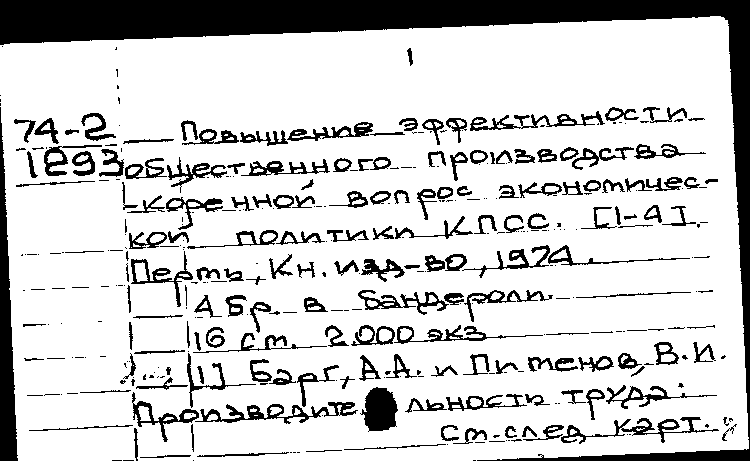 1
74-2 Повышение эффективности
1293 общественного производства
-коренной вопрос экономичес-
кой политики КПСС. [1-4].
Пермь, Кн. изд-во, 1974.
4 бр. в бандероли.
16 см. 2.000 экз.
[1] Барг, А.А. и Пименов, В.И.
Производительность труда:
См. след. карт.